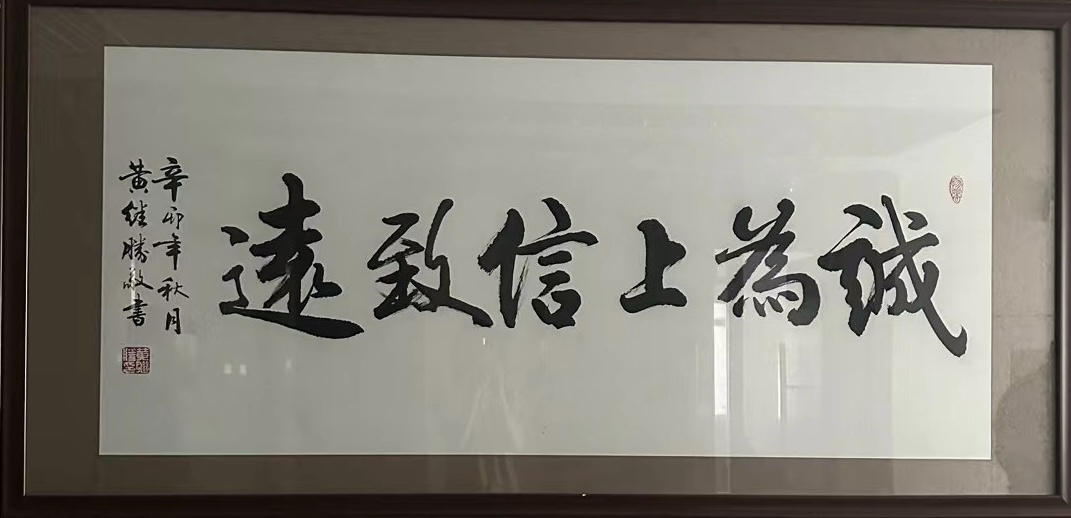 誠為上信致遠
辛卯年秋月
黄继勝敬書